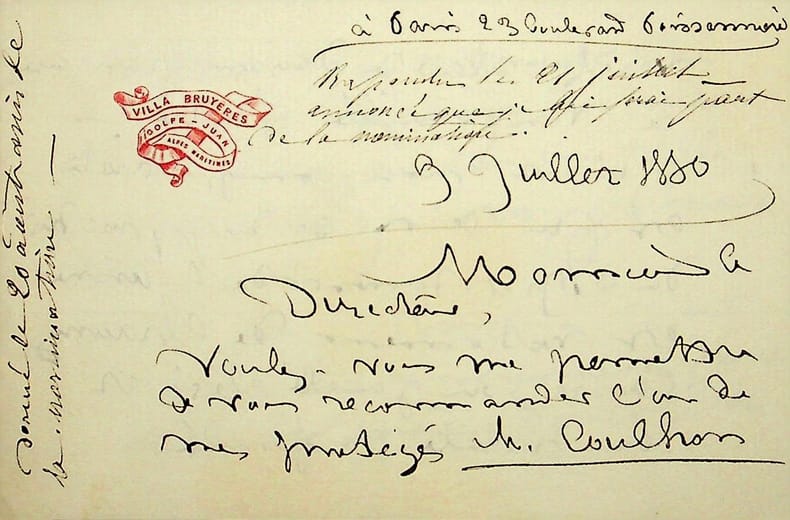 à Paris 23 boulevard Poissonnière
Répondu le 21 juillet
annoncé que je lui ferai part
de la nomination.
VILLA BRUYÈRES
GOLFE-JUAN
ALPES MARITIMES
9 Juillet 1880
Monsieur le
Directeur,
Voulez-vous me permettre
de vous recommander l'un de
mes protégés M. Coulhon
Donné le 20 avis de
la nomination